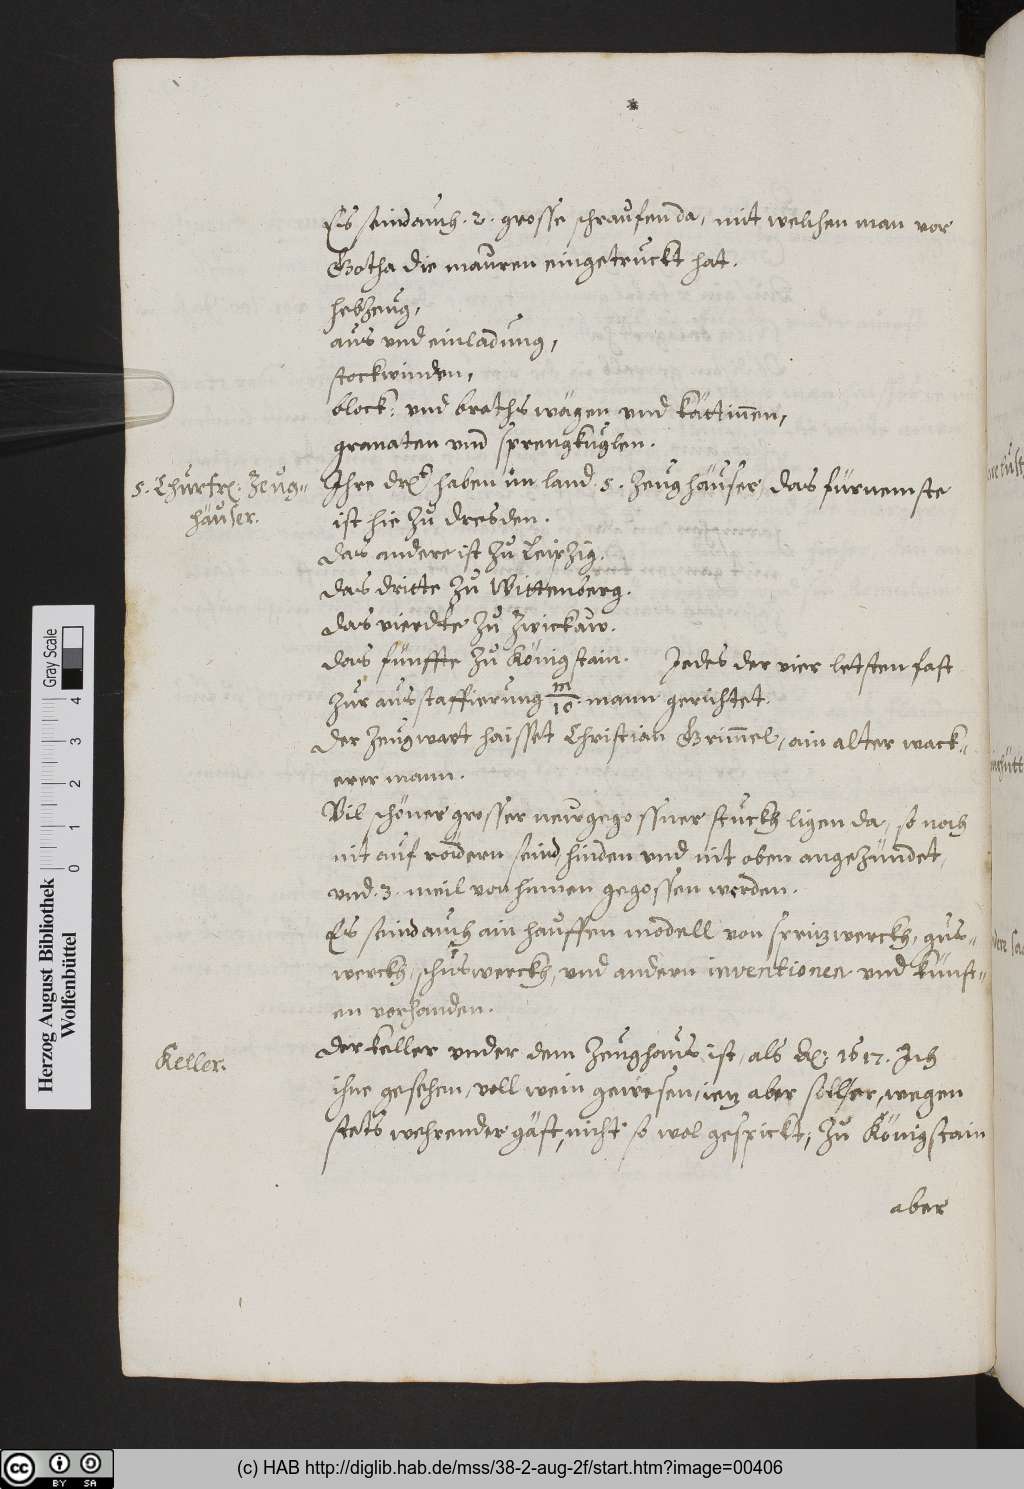 Es seind auch .2. grosse schraufen da, mit welchen man vor
Gotha die mauren eingetruckt hat.
hebzeug,
aus und einladung,
stockwinden,
block: und brothswägen und kättinnen,
granaten und sprengkuglen.
5. Churfrl: Zeug=
häuser.
Ihre drlt haben im land .5. Zeughäuser, das fürnemste
ist hie zu dresden.
das andere ist zu Leipzig.
das dritte zu Wittenberg.
das vierdte zu Zwickaw.
das fünffte zu Königstain. Jedes der vier letsten fast
zur ausstaffierung m/10. mann gerichtet.
der Zeugwart haisset Christian Grimmel, ain alter wack=
erer mann.
Vil schöner grosser newgegossner stuckh ligen da, so noch
nit auf rödern seind, hinden und nit oben angezündet,
und .3. meil von hinnen gegossen werden.
Es seind auch ain hauffen modell von sprizwerckh, gus=
werckh, schuswerckh, und andern inventionen und künst=
en vorhanden.
Keller.
der keller under dem Zeughaus ist, als Ao: 1617. Ich
ihne gesehen, voll wein gewesen, iez aber soll er, wegen
stets wehrender gäst, nicht so wol gespickt, zu Königstain
aber
Herzog August Bibliothek
Wolfenbüttel
Gray Scale
0 1 2 3 4
(c) HAB http://diglib.hab.de/mss/38-2-aug-2f/start.htm?image=00406
cc BY SA